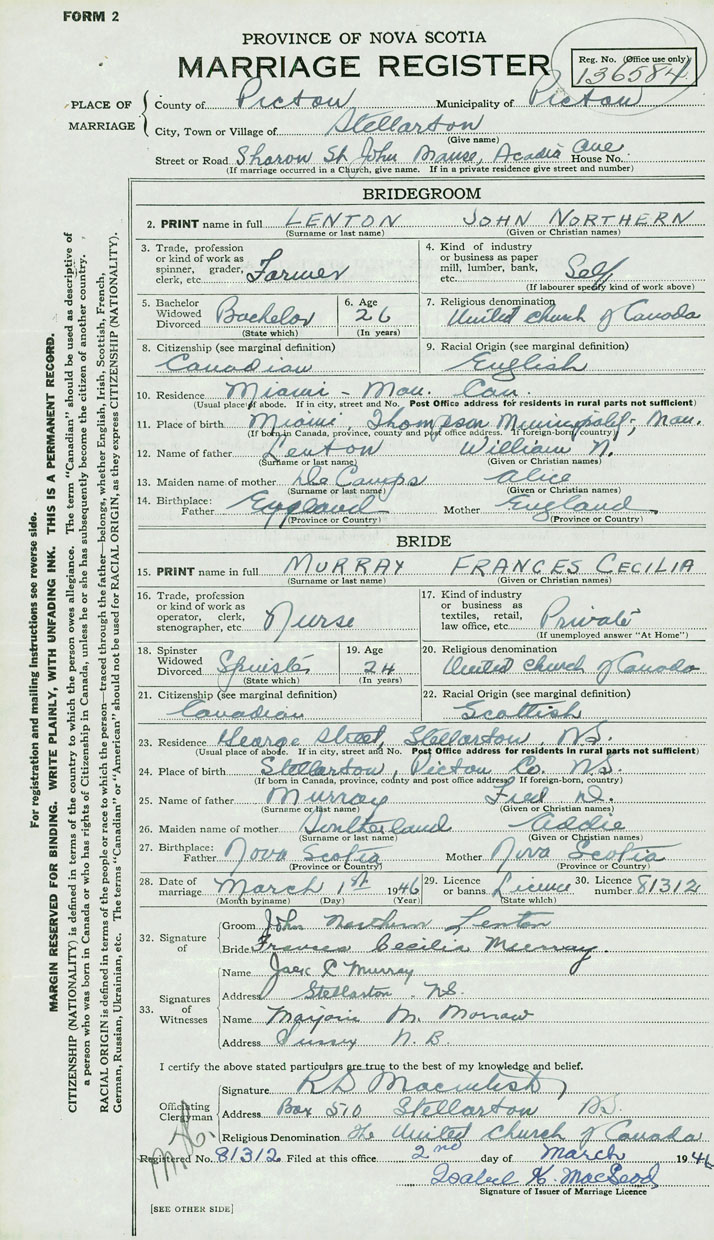 FORM 2
PROVINCE OF NOVA SCOTIA
MARRIAGE REGISTER
Reg. No. (Office use only)
136584
PLACE OF MARRIAGE
County of Pictou Municipality of Pictou
City, Town or Village of Stellarton
(Give name)
Street or Road Sharon St John Manse, Acadia Ave House No.
(If marriage occurred in a Church, give name. If in a private residence give street and number)
BRIDEGROOM
2. PRINT name in full LENTON JOHN NORTHERN
(Surname or last name) (Given or Christian names)
3. Trade, profession or kind of work as spinner, grader, clerk, etc. Farmer
4. Kind of industry or business as paper mill, lumber, bank, etc. Self
(If labourer specify kind of work above)
5. Bachelor Widowed Divorced Bachelor
(State which)
6. Age 26
(In years)
7. Religious denomination
United Church of Canada
8. Citizenship (see marginal definition)
Canadian
9. Racial Origin (see marginal definition)
English
10. Residence Miami - Man. Can.
(Usual place of abode. If in city, street and No. Post Office address for residents in rural parts not sufficient)
11. Place of birth Miami, Thompson Municipality, Man.
(If born in Canada, province, county and post office address. If foreign-born, country)
12. Name of father Lenton William N.
(Surname or last name) (Given or Christian names)
13. Maiden name of mother De Camps Alice
(Surname or last name) (Given or Christian names)
14. Birthplace: Father England Mother England
(Province or Country) (Province or Country)
BRIDE
15. PRINT name in full MURRAY FRANCES CECILIA
(Surname or last name) (Given or Christian names)
16. Trade, profession or kind of work as operator, clerk, stenographer, etc. Nurse
17. Kind of industry or business as textiles, retail, law office, etc. Private
(If unemployed answer "At Home")
18. Spinster Widowed Divorced Spinster
(State which)
19. Age 24
(In years)
20. Religious denomination
United Church of Canada
21. Citizenship (see marginal definition)
Canadian
22. Racial Origin (see marginal definition)
Scottish
23. Residence George Street, Stellarton, N.S.
(Usual place of above. If in city, street and No. Post Office address for residents in rural parts not sufficient)
24. Place of birth Stellarton, Pictou Co. N.S.
(If born in Canada, province, county and post office address. If foreign-born, country)
25. Name of father Murray Fred D.
(Surname or last name) (Given or Christian names)
26. Maiden name of mother Southerland Addie
(Surname or last name) (Given or Christian names)
27. Birthplace: Father Nova Scotia Mother Nova Scotia
(Province or Country) (Province or Country)
28. Date of marriage March 1st 1946
(Month by name) (Day) (Year)
29. Licence or banns Licence
(State which)
30. Licence number 81312
32. Signature of
Groom John Northern Lenton
Bride Frances Cecilia Murray
33. Signatures of Witnesses
Name Jack R Murray
Address Stellarton N.S.
Name Marjorie M. Morrow
Address Sussex N.B.
I certify the above stated particulars are true to the best of my knowledge and belief.
Officiating Clergyman
Signature
Address Box 510 Stellarton N.S.
Religious Denomination The United Church of Canada
Registered No. 81312 Filed at this office 2nd day of March 1946
Isabel K. MacLeod
Signature of Issuer of Marriage Licence
[SEE OTHER SIDE]
For registration and mailing instructions see reverse side.
MARGIN RESERVED FOR BINDING. WRITE PLAINLY, WITH UNFADING INK. THIS IS A PERMANENT RECORD.
CITIZENSHIP (NATIONALITY) is defined in terms of the country to which the person owes allegiance. The term "Canadian" should be used as descriptive of
a person who was born in Canada or who has rights of Citizenship in Canada, unless he or she has subsequently become the citizen of another country.
RACIAL ORIGIN is defined in terms of the people or race to which the person—traced through the father—belongs, whether English, Irish, Scottish, French,
German, Russian, Ukrainian, etc. The terms "Canadian" or "American" should not be used for RACIAL ORIGIN, as they express CITIZENSHIP (NATIONALITY).